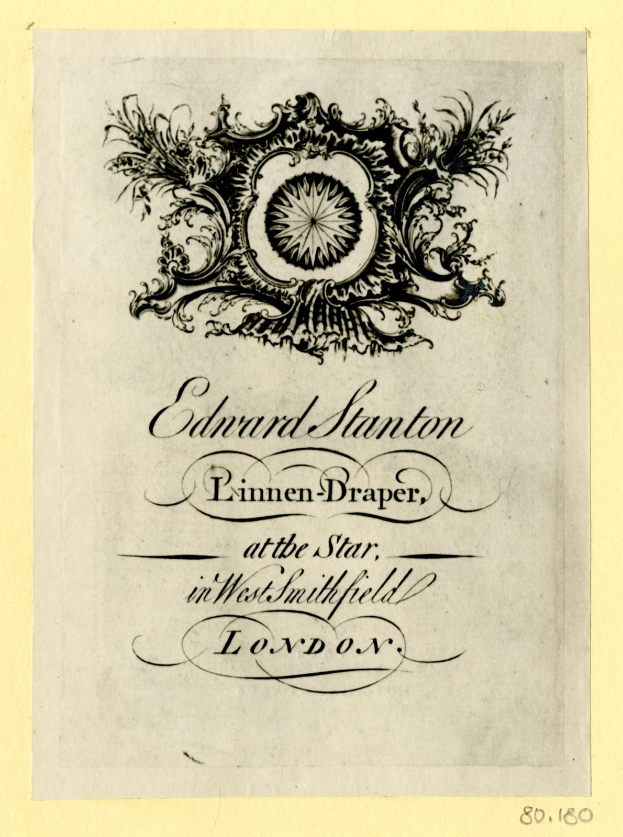 Edward Stanton
Linnen-Draper,
at the Star,
in West Smithfield
LONDON.
80.180